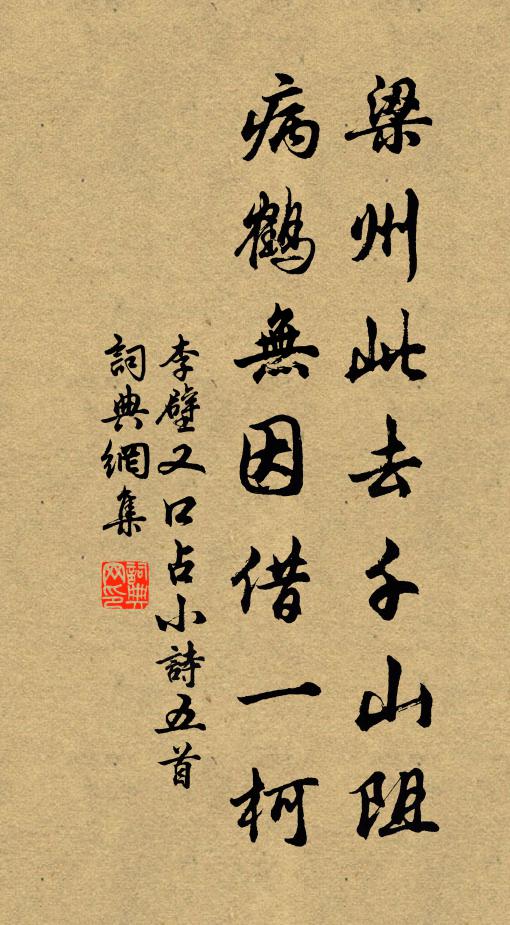 梁州此去千山阻
病鶴無因借一柯
李壁又口占小詩五首
詞典網集
詞典網印